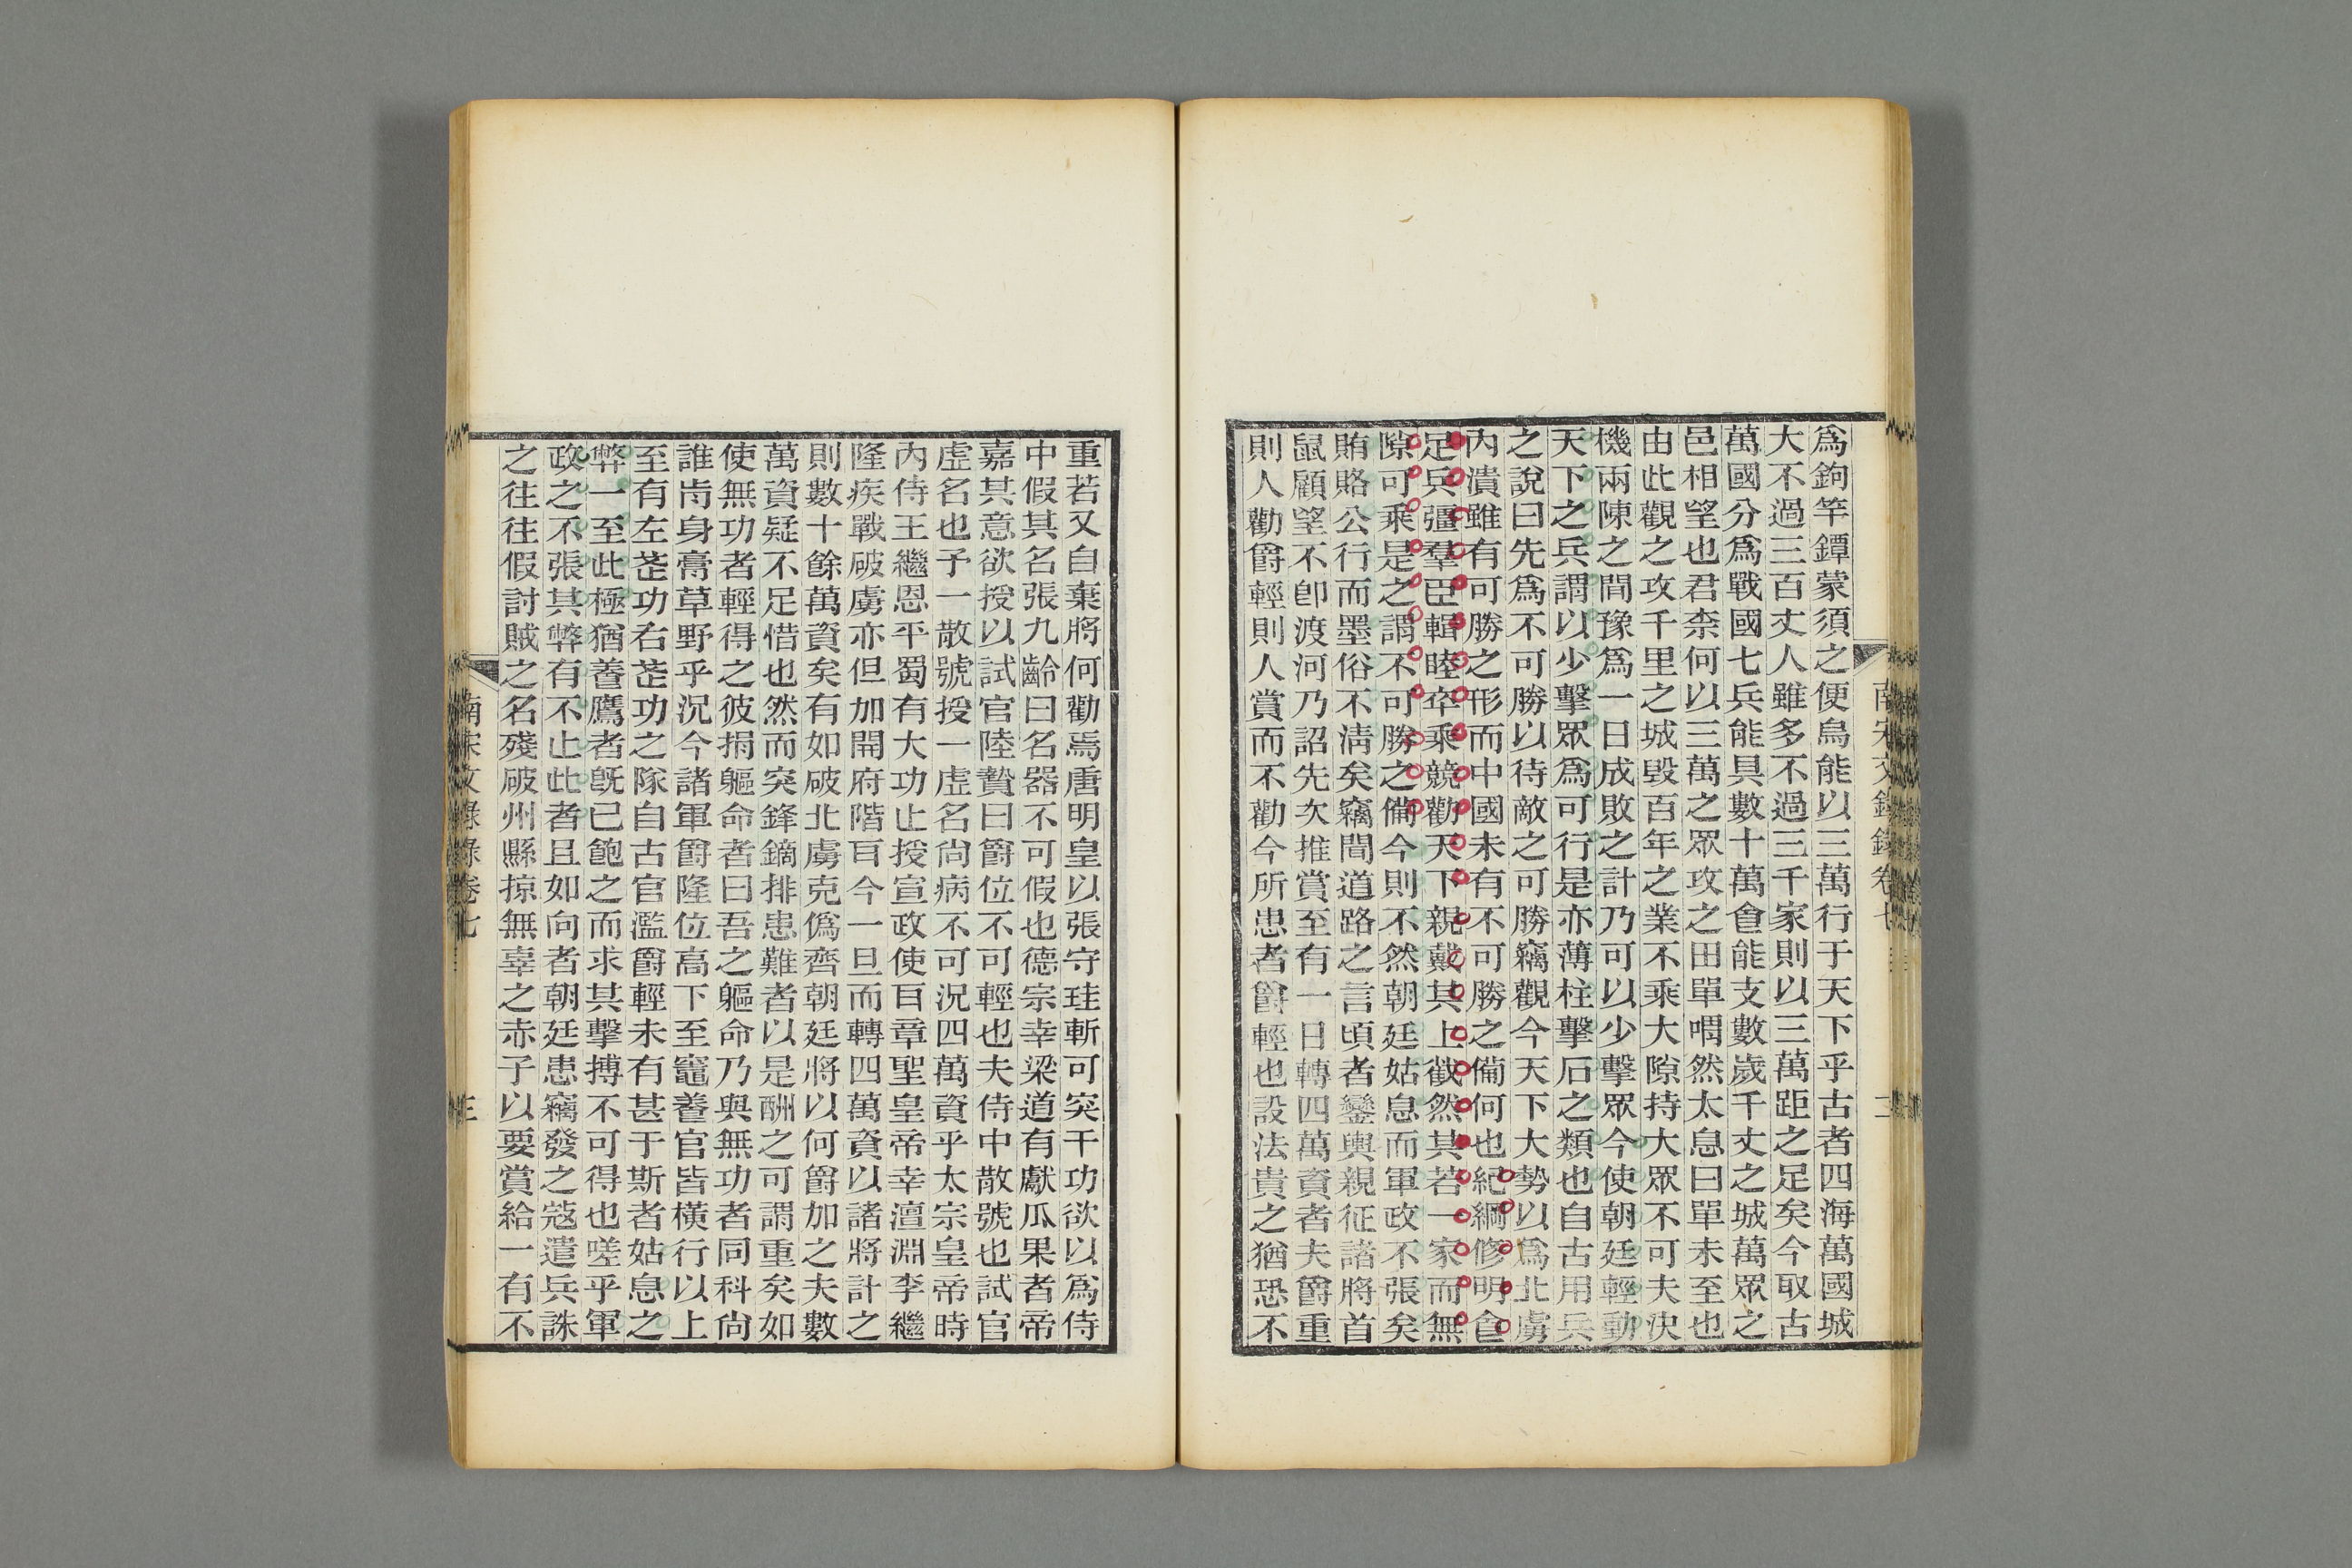 南宋文錄錄卷七
二
爲鉤竿鐔蒙須之便烏能以三萬行于天下乎古者四海萬國城
大不過三百丈人雖多不過三千家則以三萬距之足矣今取古
萬國分爲戰國七兵能具數十萬食能支數歲千丈之城萬眾之
邑相望也君柰何以三萬之眾攻之田單喟然太息曰單未至也
由此觀之攻千里之城毀百年之業不乘大隙持大眾不可夫決
機兩陳之間豫爲一日成敗之計乃可以少擊眾今使朝廷輕動
天下之兵謂以少擊眾爲可行是亦薄柱擊石之類也自古用兵
之說曰先爲不可勝以待敵之可勝竊觀今天下大勢以爲北虜
內潰雖有可勝之形而中國未有不可勝之備何也紀綱修明食
足兵彊羣臣輯睦卒乘競勸天下親戴其上截然其若一家而無
隙可乘是之謂不可勝之備今則不然朝廷姑息而軍政不張矣
賄賂公行而墨俗不淸矣竊聞道路之言頃者鑾輿親征諸將首
鼠顧望不卽渡河乃詔先次推賞至有一日轉四萬資者夫爵重
則人勸爵輕則人賞而不勸今所患者爵輕也設法貴之猶恐不
重若又自棄將何勸焉唐明皇以張守珪斬可突干功欲以爲侍
中假其名張九齡曰名器不可假也德宗幸梁道有獻瓜果者帝
嘉其意欲授以試官陸贄曰爵位不可輕也夫侍中散號也試官
虛名也予一散號授一虛名尙病不可況四萬資乎太宗皇帝時
內侍王繼恩平蜀有大功止授宣政使百章聖皇帝幸澶淵李繼
隆疾戰破虜亦但加開府階百今一旦而轉四萬資以諸將計之
則數十餘萬資矣有如破北虜克僞齊朝廷將以何爵加之夫數
萬資疑不足惜也然而突鋒鏑排患難者以是酬之可謂重矣如
使無功者輕得之彼捐軀命者曰吾之軀命乃與無功者同科尙
誰肯身膏草野乎況今諸軍爵隆位高下至竈養官皆橫行以上
至有左茫功右茫功之隊自古官濫爵輕未有甚于斯者姑息之
弊一至此極猶養鷹者旣已飽之而求其擊搏不可得也嗟乎軍
政之不張其弊有不止此者且如向者朝廷患竊發之寇遣兵誅
之往往假討賊之名殘破州縣掠無辜之赤子以要賞給一有不
南宋文錄錄卷七
三